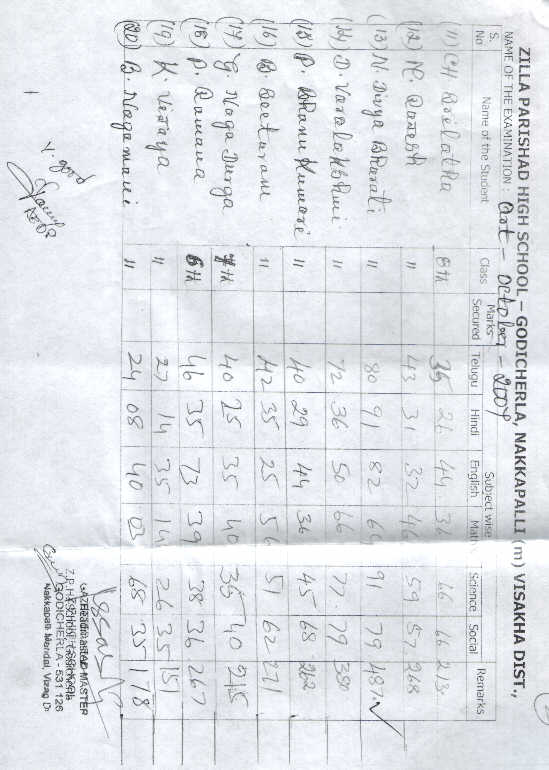 ZILLA PARISHAD HIGH SCHOOL – GODICHERLA, NAKKAPALLI (m) VISAKHA DIST.,
NAME OF THE EXAMINATION: October - 2004
S. No Name of the Student Class Marks Secured Subject wise Remarks
Telugu Hindi English Maths Science Social
(11) CH Srilatha 8th 35 26 44 36 66 213
(12) K. Ramesh " 43 31 32 46 59 57 268
(13) N. Durga Bharati " 80 91 82 64 91 79 487 ✓
(14) D. Varalakshmi " 72 36 50 66 77 79 380
(15) P. Bhanu Kumari " 40 29 44 36 45 68 262
(16) B Seeturam " 42 35 25 56 51 62 271
(17) G. Naga Durga 7th 40 25 35 40 35 40 215
(18) P. Ramana 6th 46 35 73 39 38 36 267
(19) K. Vijaya " 27 14 35 14 26 35 151
(20) B. Nagamani " 24 08 40 03 68 35 178
V. good
GODICHERLA, 531 126
Nakkapalli Mandal, Vizag Dt